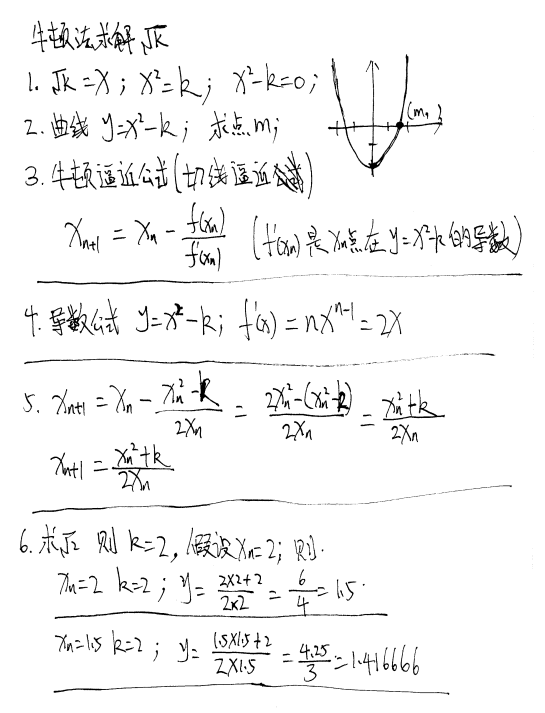 牛顿法求解√k
1. √k = x; x²=k; x²-k=0;
(m, )
2. 曲线 y=x²-k; 求点m;
3. 牛顿逼近公式(切线逼近)
xₙ₊₁ = xₙ - f(xₙ)/f'(xₙ) (f'(xₙ)是xₙ点在y=x²-k的导数)
4. 导数公式 y=x²-k; f'(x)=nxⁿ⁻¹=2x
5. xₙ₊₁ = xₙ - (xₙ²-k)/2xₙ = (2xₙ²-(xₙ²-k))/2xₙ = (xₙ²+k)/2xₙ
xₙ₊₁ = (xₙ²+k)/2xₙ
6. 求√2 则 k=2, 假设xₙ=2; 则.
xₙ=2 k=2; y= (2x2+2)/(2x2) = 6/4 = 1.5.
xₙ=1.5 k=2; y= (1.5x1.5+2)/(2x1.5) = 4.25/3 = 1.416666